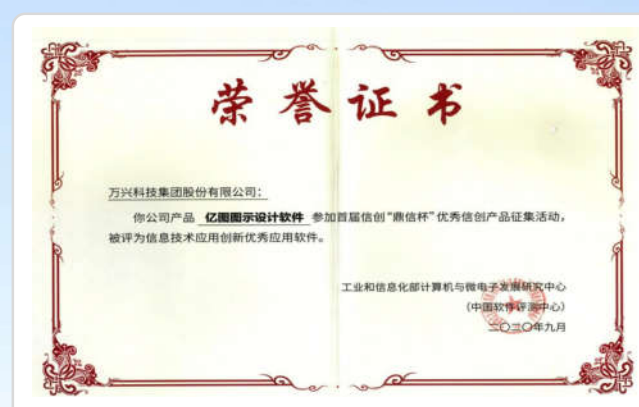 荣誉证书
万兴科技集团股份有限公司：
你公司产品 亿图图示设计软件 参加首届信创“鼎信杯”优秀信创产品征集活动，
被评为信息技术应用创新优秀应用软件。
工业和信息化部计算机与微电子发展研究中心
（中国软件评测中心）
二〇二〇年九月